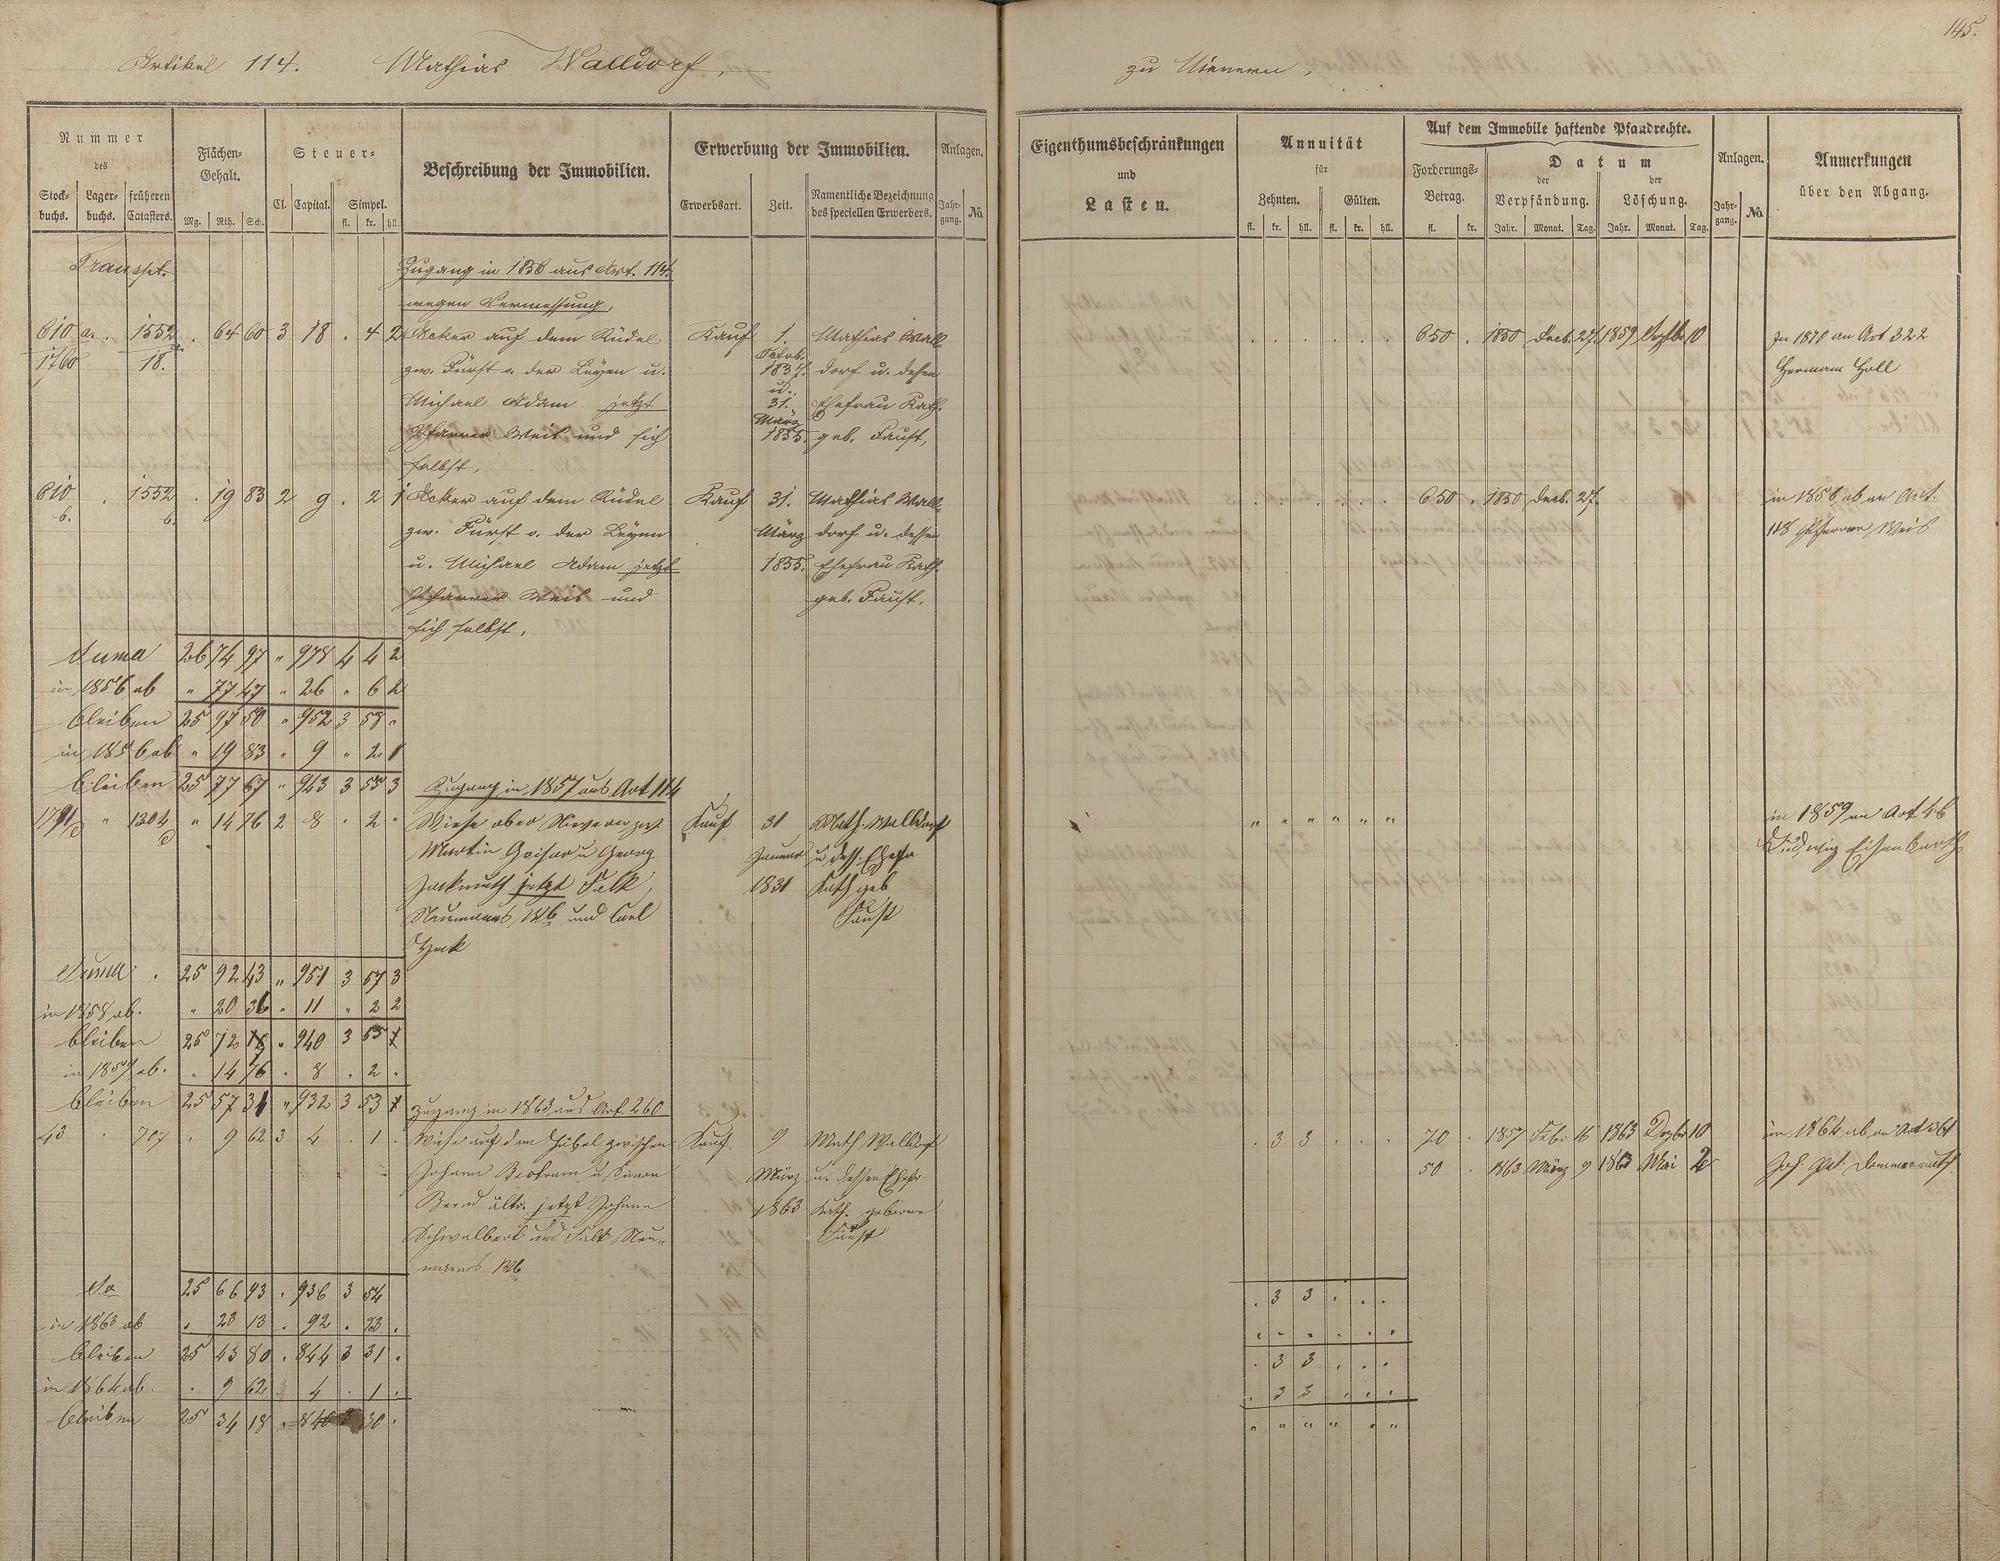 145.
Artikel 114. Mathias Walldorf,
zu Nievern,
Nummer
des
Stock-
buchs.
Lager-
buchs.
früheren
Catasters.
Flächen-
Gehalt.
Mg. Rth. Sch.
Steuer-
Cl. Capital. Simpel.
fl. kr. hll.
Beschreibung der Immobilien.
Erwerbung der Immobilien.
Erwerbsart. Zeit. Namentliche Bezeichnung
des speciellen Erwerbers.
Anlagen.
Jahr-
gang. No
Eigenthumsbeschränkungen
und
Lasten.
Annuität
für
Zehnten. Gülten.
fl. kr. hll. fl. kr. hll.
Auf dem Immobile haftende Pfandrechte.
Forderungs-
Betrag.
fl. kr.
Datum
der der
Verpfändung. Löschung.
Jahr. Monat. Tag. Jahr. Monat. Tag.
Anlagen.
Jahr-
gang. No
Anmerkungen
über den Abgang.
Transpt.
Zugang in 1856 aus Art. 114.
wegen Vermessung,
610 a. . 1552 . 64 60 3 18 . 4 2 Acker auf dem Rüdel Kauf 1. Mathias Wall-
1760 18. zw. Fürst v. der Leyen u. Octob. 1837. dorf u. dessen
Michael Adam jetzt u. 31. Ehefrau Kath.
Pfarrer Weis und sich März 1855. geb. Faust,
selbst,
. . . . . . 650 . 1850 Decb. 27. 1859 10 In 1870 an Art 322
Hermann Holl
610 . 1552 . 19 83 2 9 . 2 1 Acker auf dem Rüdel Kauf 31. Mathias Wall-
b. b. zw. Fürst v. der Leyen März dorf u. dessen
u. Michael Adam jetzt 1855. Ehefrau Kath.
Pfarrer Weis und geb. Faust.
sich selbst,
. . . . . . 650 . 1850 Decb. 27. in 1856 ab an Art.
118 Pfarrer Weis
Suma 26 74 97 " 978 4 4 2
in 1856 ab " 77 47 " 26 " 6 2
bleiben 25 97 50 " 952 3 58 "
in 1856 ab " 19 83 " 9 " 2 1
bleiben 25 77 67 " 943 3 55 3 Zugang in 1857 aus Art 114
" 1304 " 14 76 2 8 " 2 " Wiese ober Nievern zw. Kauf 31 Math. Walldorf
Martin Geisar u Georg Januar u dess. Ehefr.
jetzt Falk 1831 Kath geb
Neumanns Wb und Carl Faust
Heck
" " " " " " in 1859 an Art 46
Ludwig Eisenbarth
Suma . 25 92 43 " 951 3 57 3
in 1858 ab. " 20 36 " 11 " 2 2
bleiben 25 72 " 940 3 55
in 1859 ab. " 14 76 " 8 " 2 "
bleiben 25 57 31 " 932 3 53 Zugang in 1863 aus Art. 260
43 . 707 . 9 62 3 4 . 1 . Wiese auf dem Hübel zwischen Kauf 9 Math Walldorf
Johann Bertram u Simon März u. dessen Ehefr.
ältr. jetzt Johann 1863 Kath. geborne
Schwalbert und Falk Neu- Faust
manns Wb
. 3 3 . . . 70 . 1857 Febr 16 1863 Dezbr 10 in 1864 ab an Art 261
50 . 1863 März 9 1863 Mai Joh. Pet. Dommermuth
Sa 25 66 93 . 936 3 54 . 3 3 . . .
in 1863 ab . 23 13 . 92 . 23 . . . . . . .
bleiben 25 43 80 . 844 3 31 . . 3 3 . . .
in 1864 ab. . 9 62 4 . 1 . . 3 3 . . .
bleiben 25 34 18 . 840 3 30 . " " " " " "